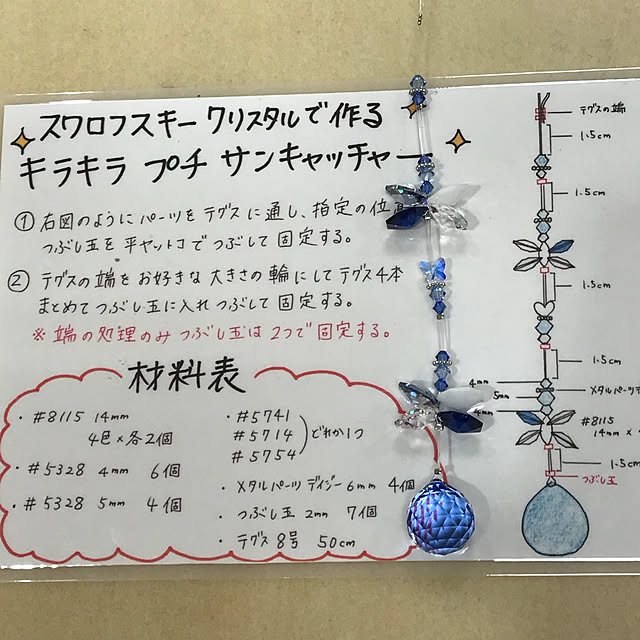 スワロフスキー クリスタルで作る
キラキラ プチ サンキャッチャー
① 右図のようにパーツをテグスに通し、指定の位
つぶし玉を平ヤットコでつぶして固定する。
② テグスの端をお好きな大きさの輪にしてテグス4本
まとめてつぶし玉に入れつぶして固定する。
※ 端の処理のみつぶし玉は2つで固定する。
材料表
・#8115 14mm
4色×各2個
・#5328 4mm 6個
・#5328 5mm 4個
・#5741
#5714
#5754
どれか1つ
・メタルパーツ デイジー 6mm 4個
・つぶし玉 2mm 7個
・テグス 8号 50cm
テグスの端
1.5cm
1.5cm
1.5cm
1.5cm
4mm
5mm
4mm
メタルパーツデ
#8115
14mm ×
1.5cm
つぶし玉